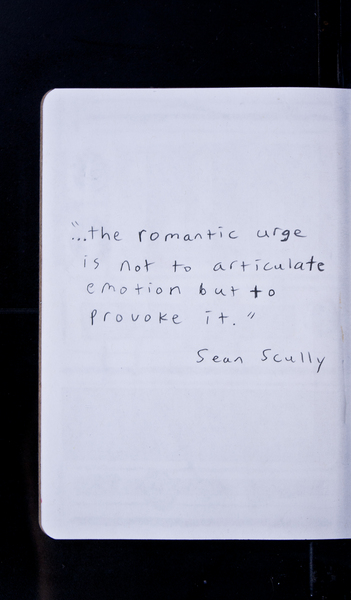 "...the romantic urge
is not to articulate
emotion but to
provoke it."
Sean Scully